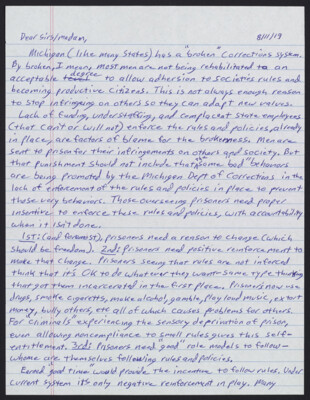 8/11/19
Dear sirs/madam,
Michigan (like many States) has a "broken" Corrections system.
By broken, I mean, most men are not being rehabilitated to an
acceptable degree to allow adhersion to societies rules and
becoming productive citizens. This is not always enough reason
to stop infringing on others so they can adapt new values.
Lack of funding, understaffing, and complacent state employees
(that can't or will not) enforce the rules and policies, already
in place, are factors of blame for the brokenness. Men are
sent to prison for their infringements on others and society. But
that punishment should not include that same "bad" behaviors
are being promoted by the Michigan Dept of Corrections in the
lack of enforcement of the rules and policies in place to prevent
those very behaviors. Those overseeing prisoners need proper
insentive to enforce these rules and policies, with accountability
when it isn't done.
1st: (and foremost), prisoners need a reason to change (which
should be freedom). 2nd: prisoners need positive reinforcement to
make that change. Prisoners seeing that rules are not inforced
think that it's OK to do what ever they want - same type thinking
that got them incarcerated in the first place. Prisoners now use
drugs, smoke cigaretts, make alcohol, gamble, play loud music, extort
money, bully others, etc all of which causes problems for others.
For criminals experiencing the sensory deprivation of prison,
even allowing noncompliance to small rules gives this self-
entitlement. 3rd: prisoners need "good" role models to follow -
whom are themselves following rules and policies.
Earned "good time" would provide the incentive to follow rules. Under
current system it's only negative reinforcement in play. Many